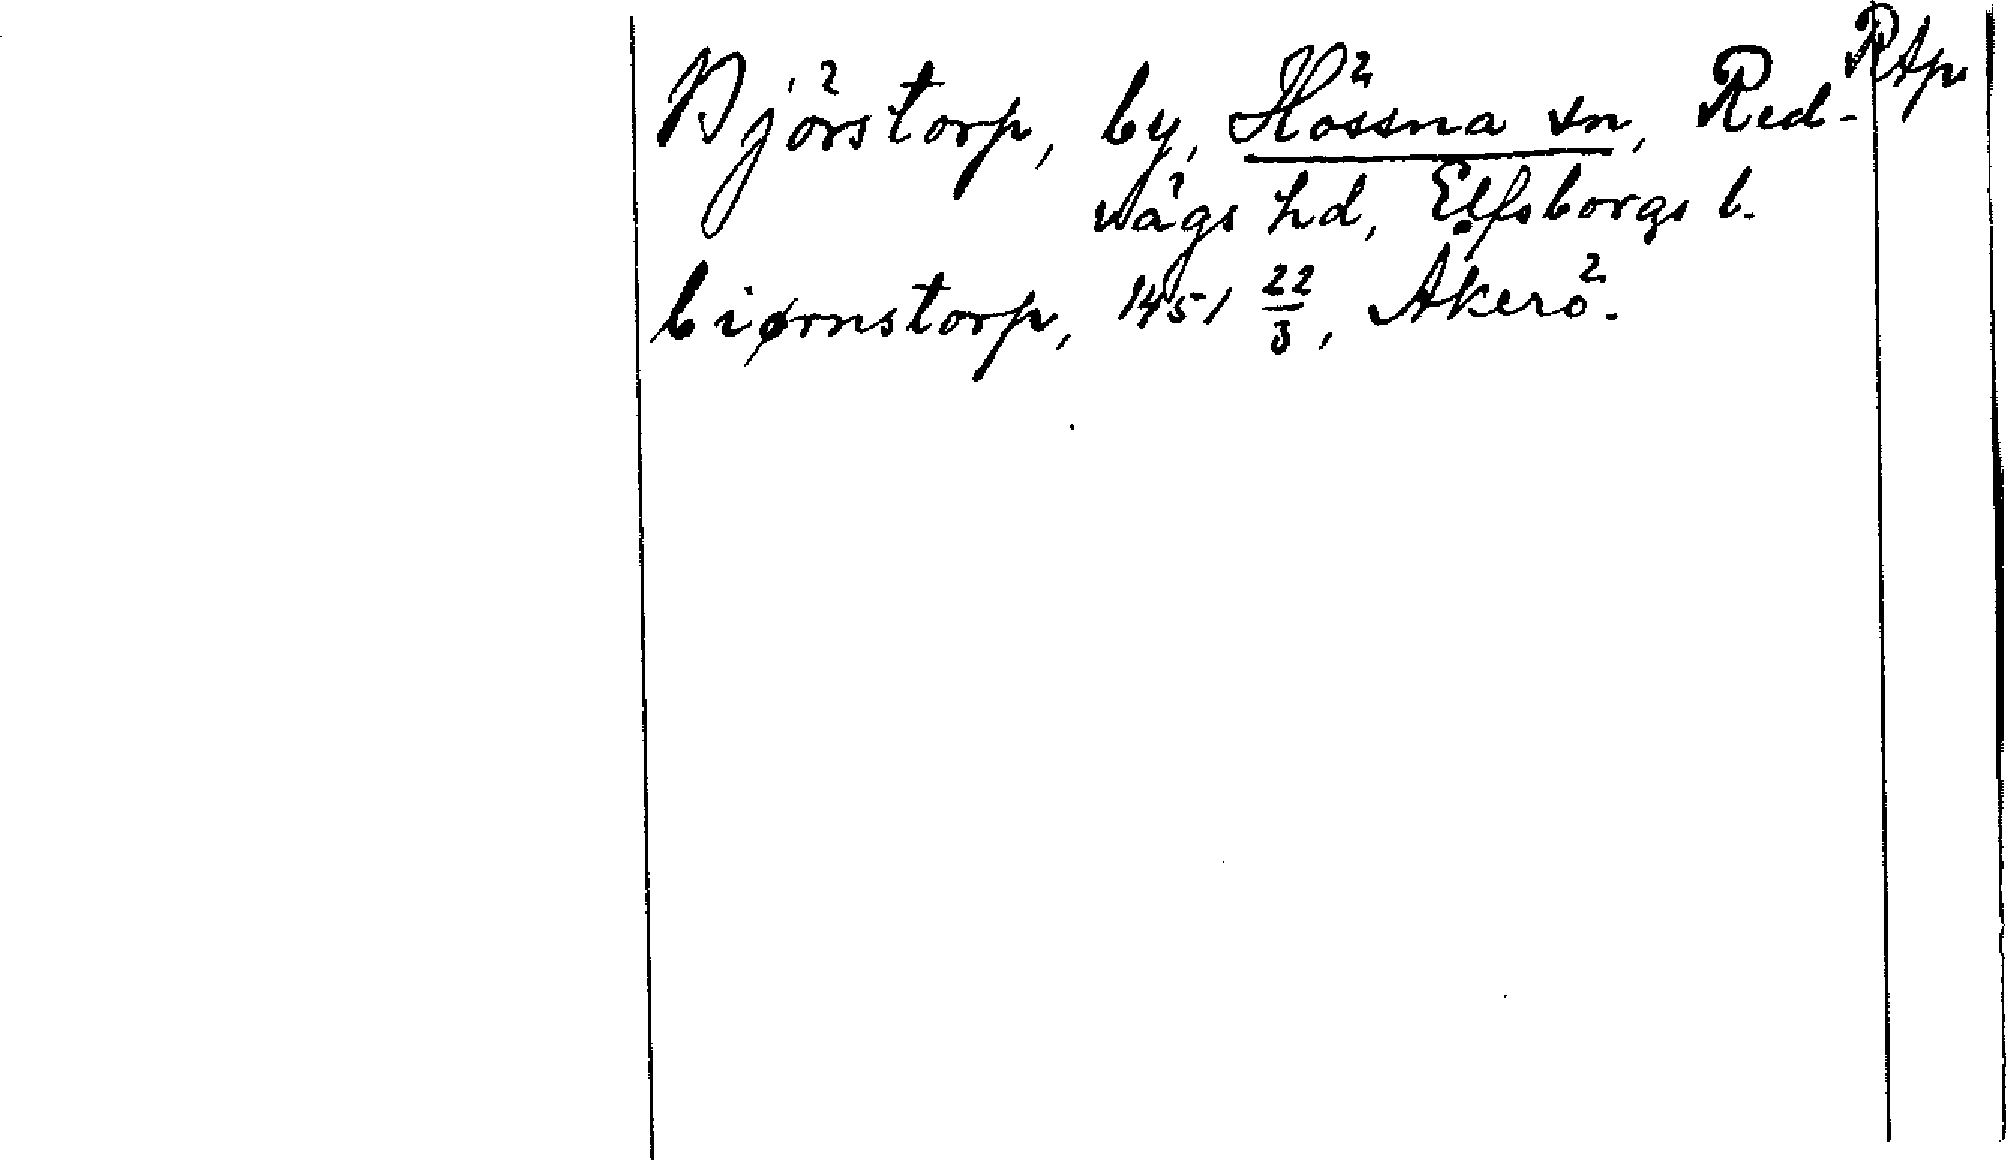 RAp
Björstorp, by, Hössna sn, Red-
vägs hd, Elfsborgs l.
biørnstorp, 1451 22/3, Åkerö.